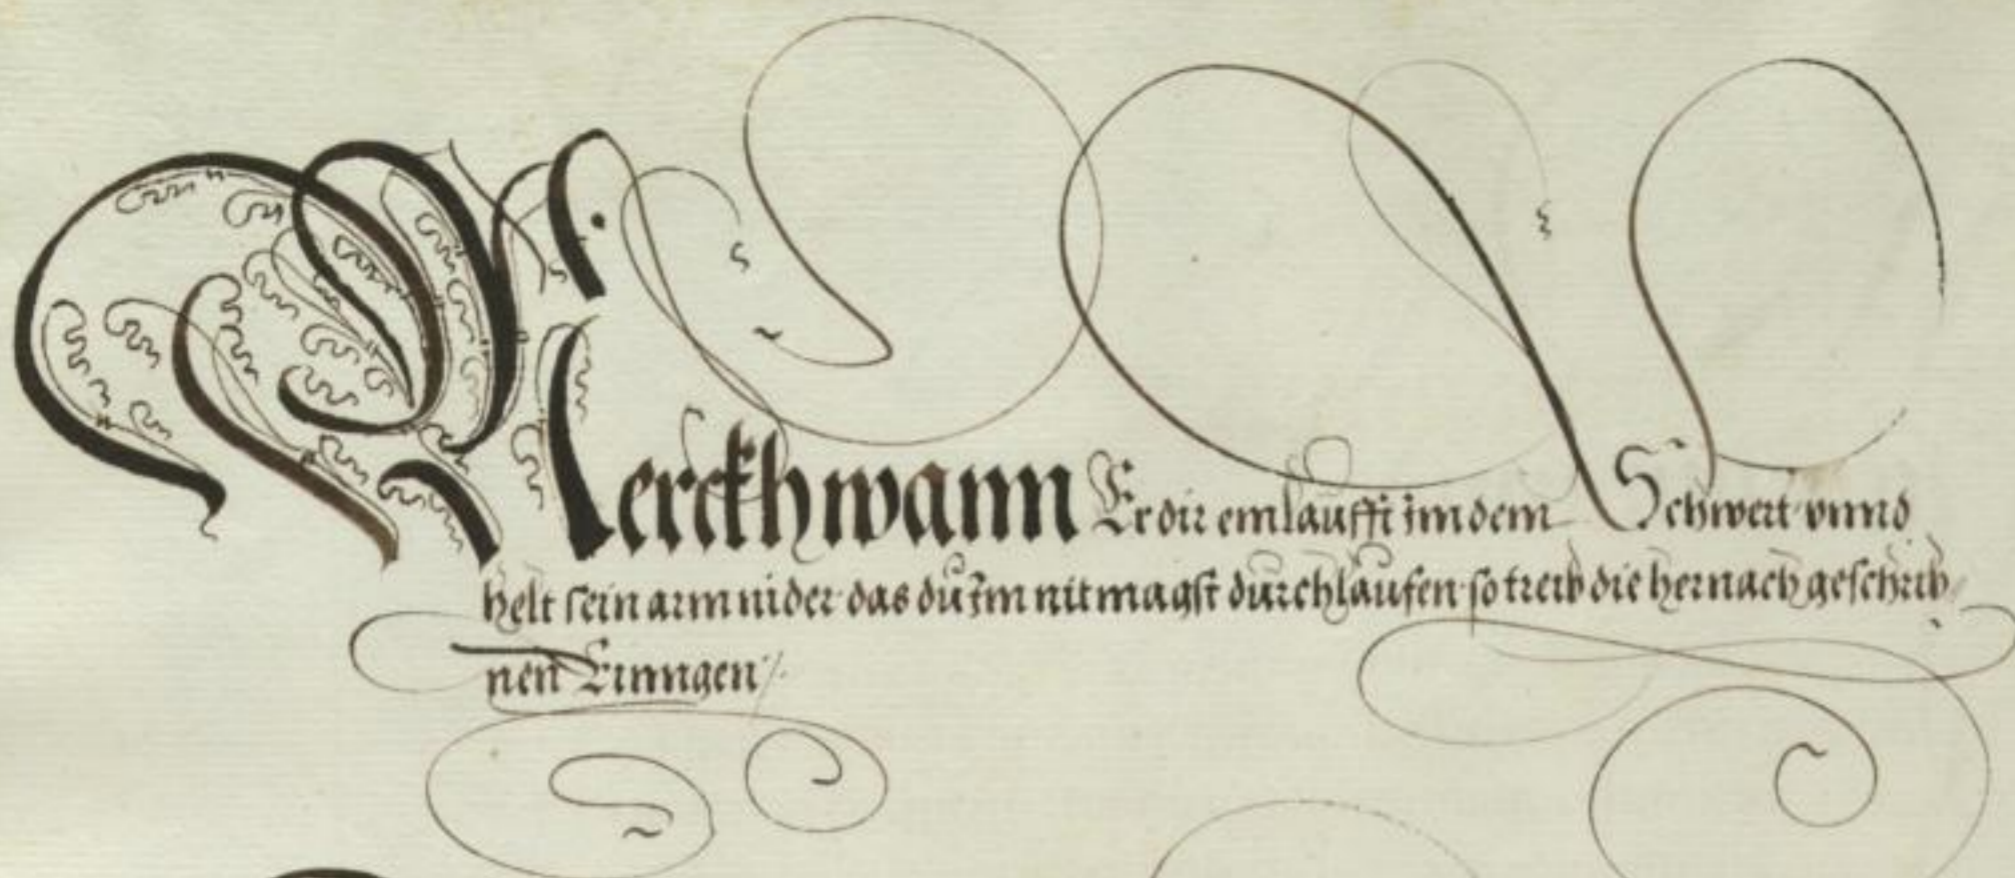 Merckh wann Er dir einlaufft im dem Schwert vnnd
helt sein arm nider das du Im nit magst durchlaufen so treib die hernach geschrib
nen Rinngen